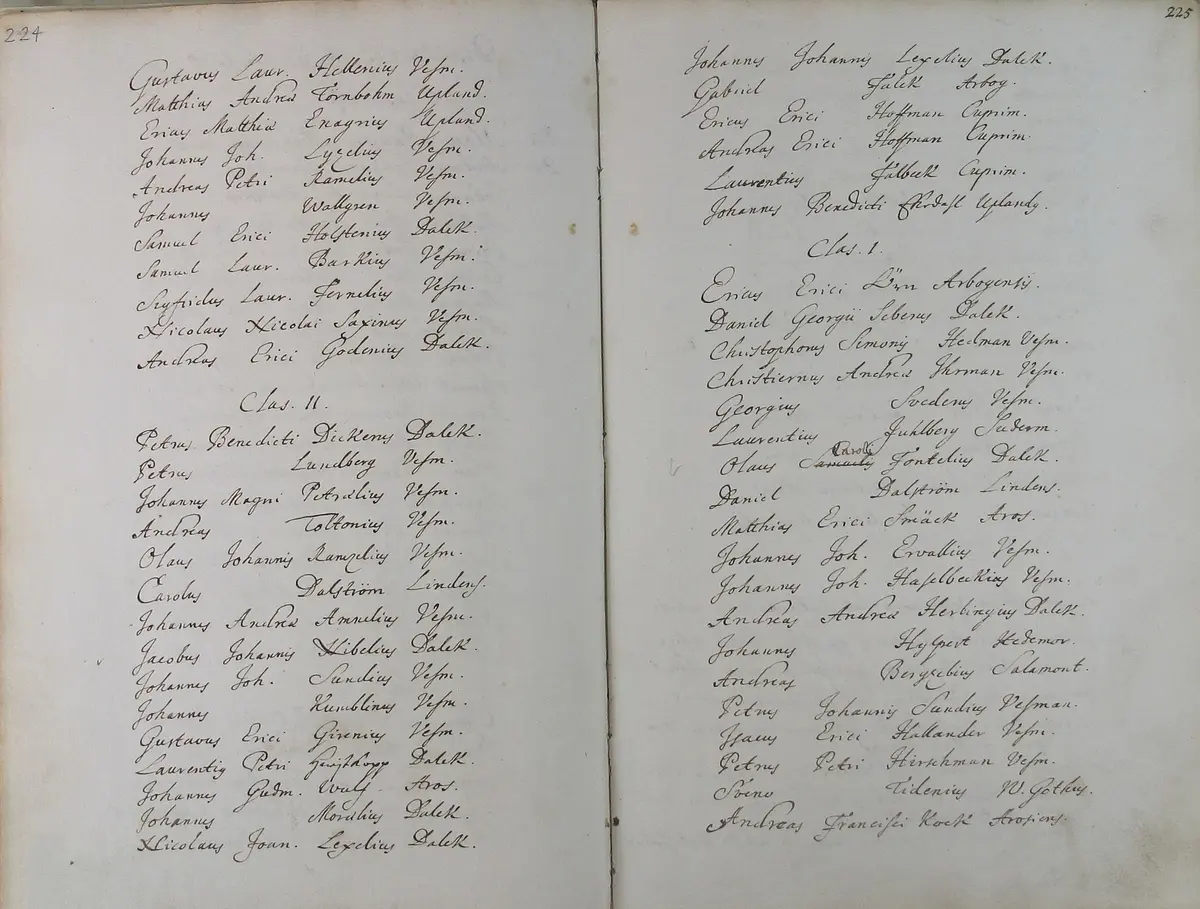 224
Gustavus Laur. Hellenius Vesm.
Matthias Andreæ Törnbohm Upland.
Ericus Matthiæ Enagrius Upland.
Johannes Joh. Lyzelius Vesm.
Andreas Petri Ramelius Vesm.
Johannes Wallgren Vesm.
Samuel Erici Holstenius Dalek.
Samuel Laur. Barkius Vesm.
Sigfridus Laur. Fernelius Vesm.
Nicolaus Nicolai Saxinus Vesm.
Andreas Erici Godenius Dalek.
Clas. II.
Petrus Benedicti Dickerus Dalek.
Petrus Lundberg Vesm.
Johannes Magni Petrælius Vesm.
Andreas Toltonius Vesm.
Olaus Johannis Ramzelius Vesm.
Carolus Dalström Lindens.
Johannes Andreæ Amnelius Vesm.
Jacobus Johannis Nibelius Dalek.
Johannes Joh. Sundius Vesm.
Johannes Kumblinus Vesm.
Gustavus Erici Girenius Vesm.
Laurentiꝰ Petri Dalek.
Johannes Gudm. Wulf. Aros.
Johannes Morælius Dalek.
Nicolaus Joan. Lexelius Dalek.
225
Johannes Johannis Lexelius Dalek.
Gabriel Falck Arbog.
Ericus Erici Hoffman Cuprim.
Andreas Erici Hoffman Cuprim.
Laurentius Falbeck Cuprim.
Johannes Benedicti Uplandꝰ.
Clas. I.
Ericus Erici Lörn Arbogensis.
Daniel Georgii Seberus Dalek.
Christophorus Simonis Hedman Vesm.
Christiernus Andreæ Ihrman Vesm.
Georgius Svederus Vesm.
Laurentius Juhlberg Suderm.
Carol:
Olaus Samuelis Fontelius Dalek.
Daniel Dalström Lindens.
Matthias Erici Smäck Aros.
Johannes Joh. Ervallius Vesm.
Johannes Joh. Haselbeckius Vesm.
Andreas Andreæ Herlingius Dalek.
Johannes Hülpert Hedemor.
Andreas Bergzelius Salamont.
Petrus Johannis Sundius Vesman.
Isacus Erici Hallander Vesm.
Petrus Petri Hirschman Vesm.
Sveno Tidenius W. Gothus.
Andreas Francisci Kock Arosiens.